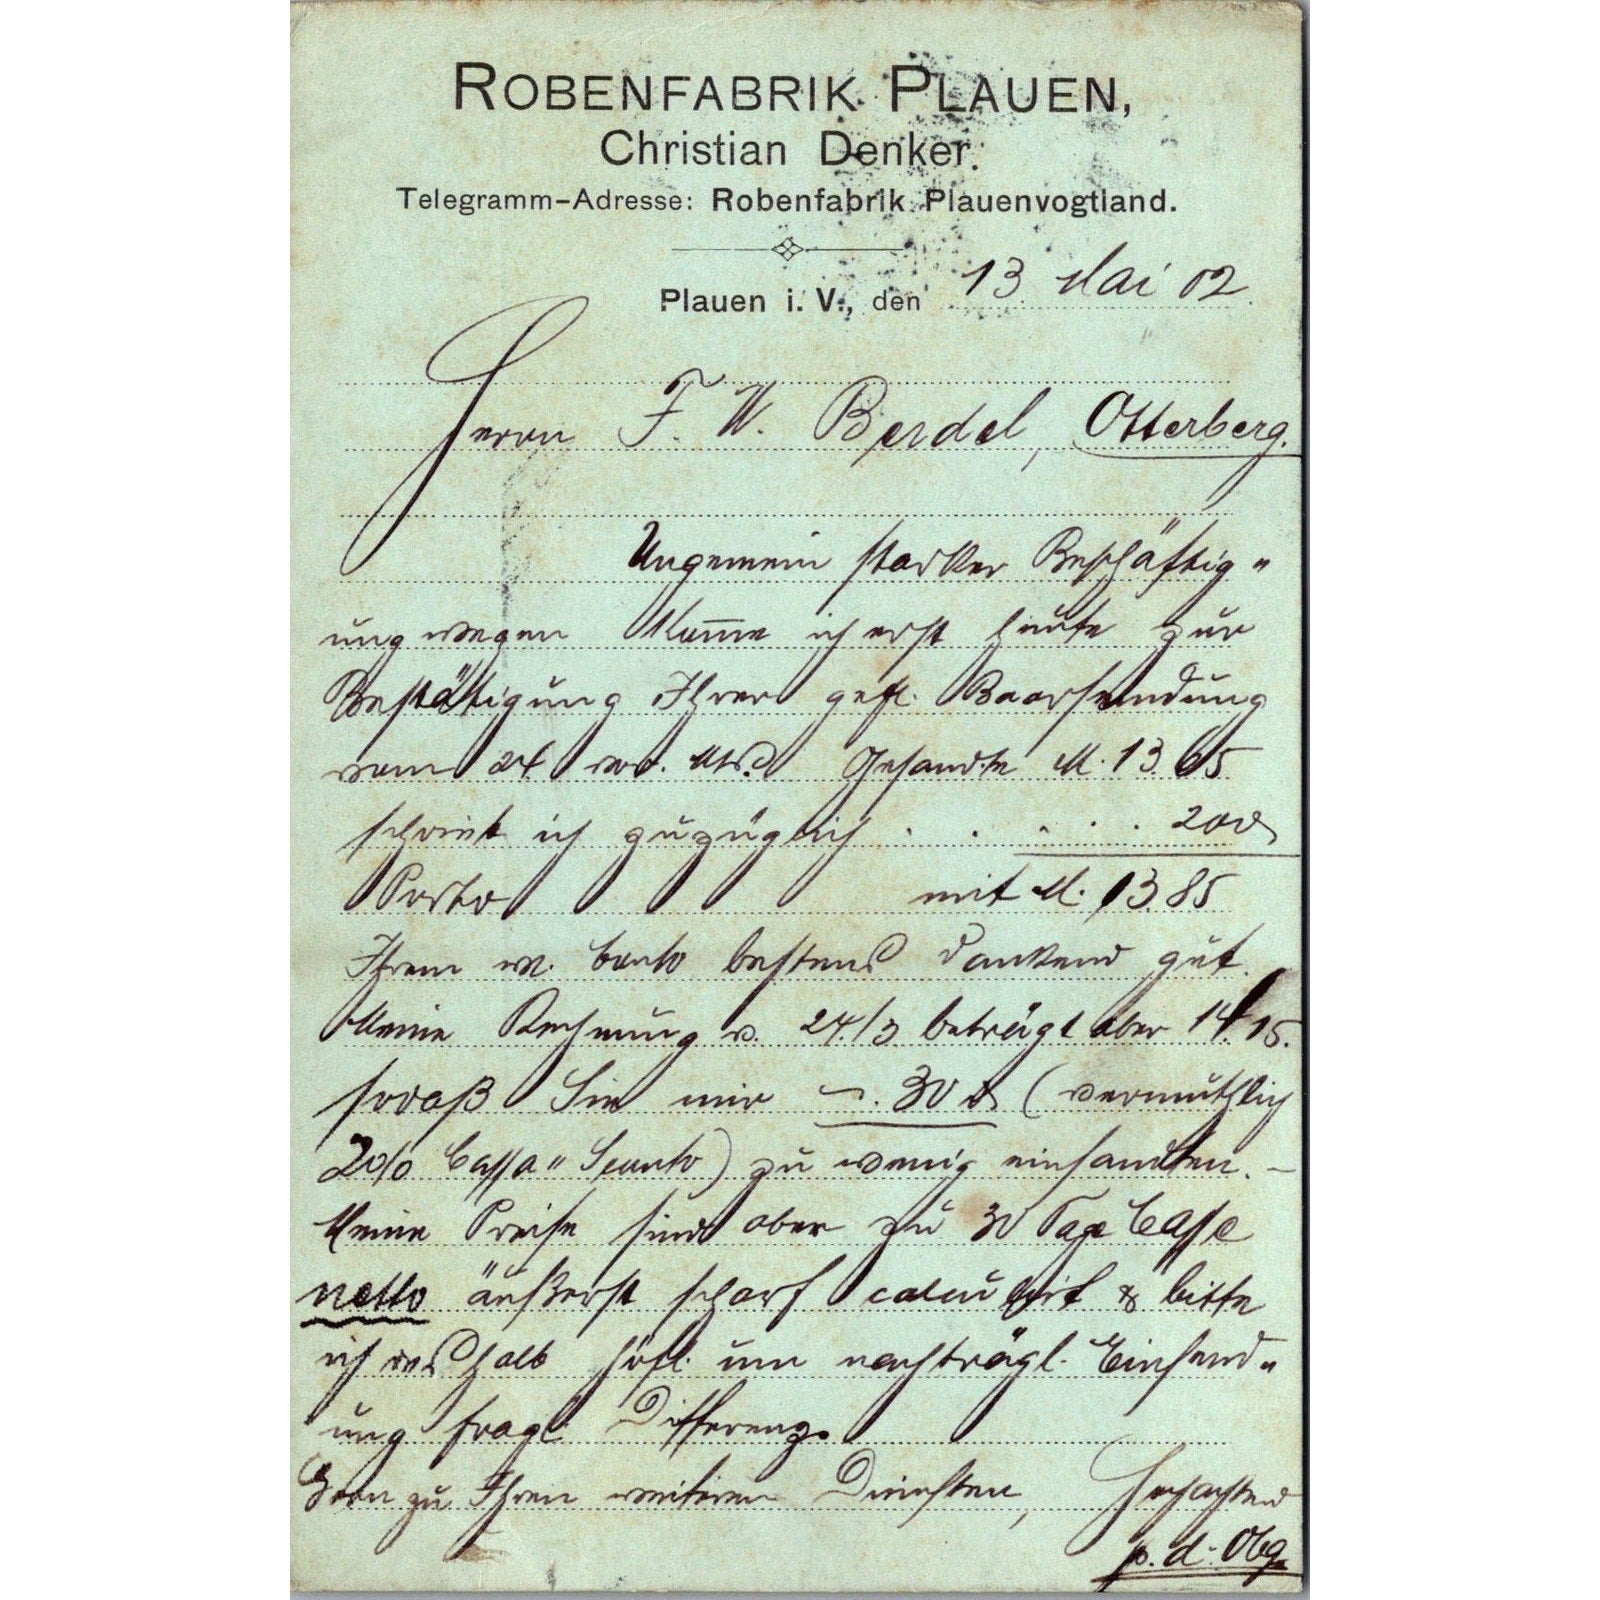 ROBENFABRIK PLAUEN,
Christian Denker.
Telegramm-Adresse: Robenfabrik Plauenvogtland.
Plauen i. V., den 13 Mai 02.
Herrn F. W. Berdel, Otterberg.
Ungemein starker Beschäftig"
ung wegen komme ich erst heute zur
Bestätigung Ihrer gefl. Baarsendung
vom 24 Gesandte M. 13.65
schrieb ich zuzüglich . . . . . 20 ₰
Porto mit M. 13.85
Ihrem w. Conto bestens dankend gut.
Meine Rechnung v. 24./3 beträgt aber 14.15.
sodaß Sie mir –. 30 ₰ (vermuthlich
2% Cassa" Sconto) zu wenig einsandten. –
Meine Preise sind aber zu 30 Tage Casse
netto äußerst scharf calculirt & bitte
ich deshalb höfl. um nachträgl. Einsend"
ung fragl. Differenz.
Gern zu Ihren weiteren Diensten, Hochachtend
p. d. Obg.